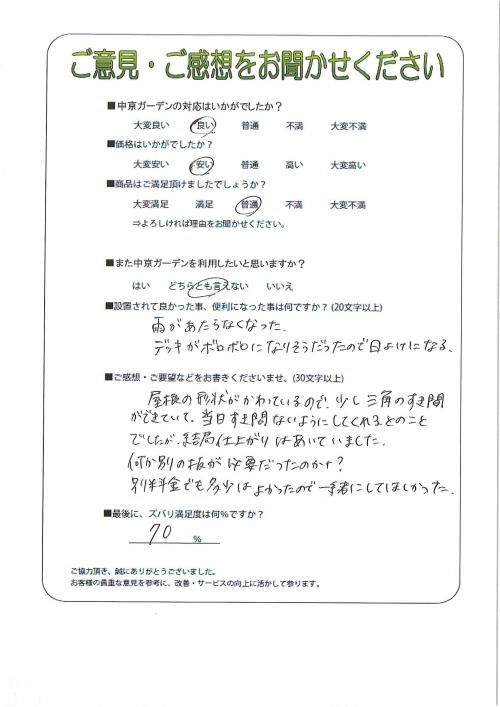 ご意見・ご感想をお聞かせください
■中京ガーデンの対応はいかがでしたか？
大変良い 良い 普通 不満 大変不満
■価格はいかがでしたか？
大変安い 安い 普通 高い 大変高い
■商品はご満足頂けましたでしょうか？
大変満足 満足 普通 不満 大変不満
⇒よろしければ理由をお聞かせください。
■また中京ガーデンを利用したいと思いますか？
はい どちらとも言えない いいえ
■設置されて良かった事、便利になった事は何ですか？(20文字以上)
雨があたらなくなった。
デッキがボロボロになりそうだったので日よけになる。
■ご感想・ご要望などをお書きくださいませ。(30文字以上)
屋根の形状がかわっているので、少し三角のすき間
ができていて、当日すき間ないようにしてくれるとのこと
でしたが、結局仕上がりはあいていました。
何か別の板が必要だったのかな？
別料金でも多少はよかったので一緒にしてほしかった。
■最後に、ズバリ満足度は何％ですか？
70 ％
ご協力頂き、誠にありがとうございました。
お客様の貴重な意見を参考に、改善・サービスの向上に活かして参ります。